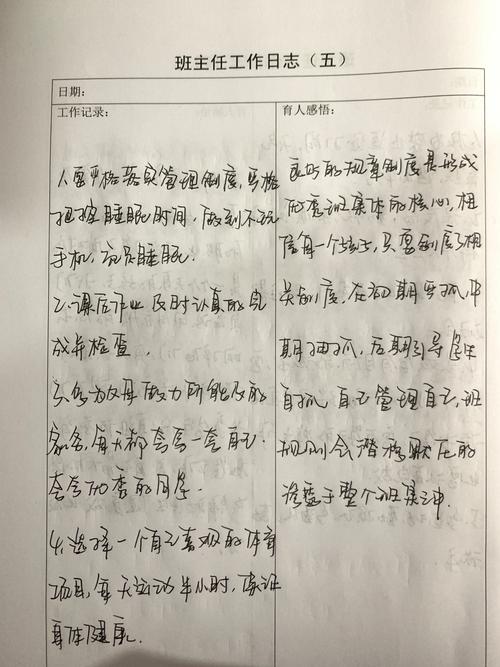 班主任工作日志（五）
日期：
工作记录：
1.要严格落实管理制度，严格
把控睡眠时间，做到不玩
手机，充足睡眠。
2.课后作业及时认真的完
成并检查。
3.多为父母做力所能及的
家务，每天都夸夸一夸自己.
夸夸优秀的同学.
4.选择一个自己喜欢的体育
项目，每天运动半小时，保证
身体健康.
育人感悟：
良好的规章制度是形成
优秀班集体的核心，相
信每一个孩子，只要制定了相
关制度，在初期严抓，中
期抽抓，后期引导学生
自抓，自己管理自己，班
规则会潜移默化的
渗透于整个班集体中.